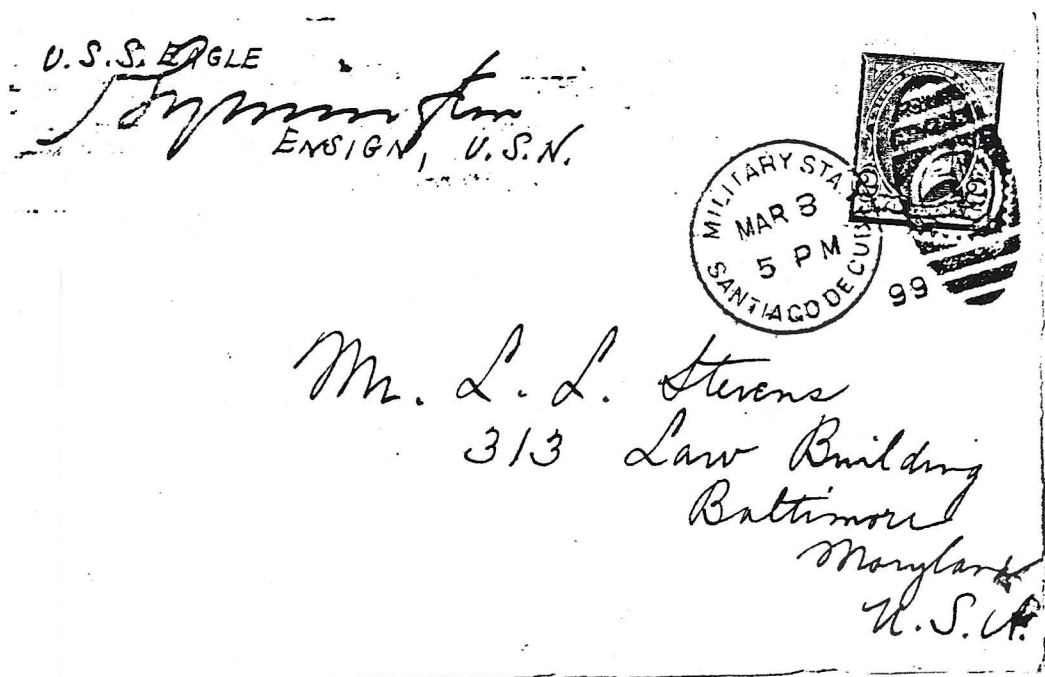 U.S.S. EAGLE
ENSIGN, U.S.N.
MILITARY STA.
MAR 3
5 PM
SANTIAGO DE CUBA
99
Mr. L. L. Stevens
313 Law Building
Baltimore
Maryland
U.S.A.